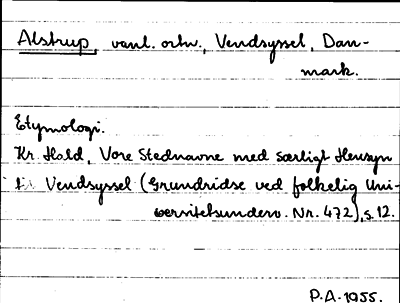 Alstrup, vanl. ortn., Vendsyssel, Dan-
mark.
Etymologi.
Kr. Hald, Vore Stednavne med særligt Hensyn
til Vendsyssel (Grundridse ved folkelig Uni-
versitetsunderv. Nr. 472), s. 12.
P.A. 1955.